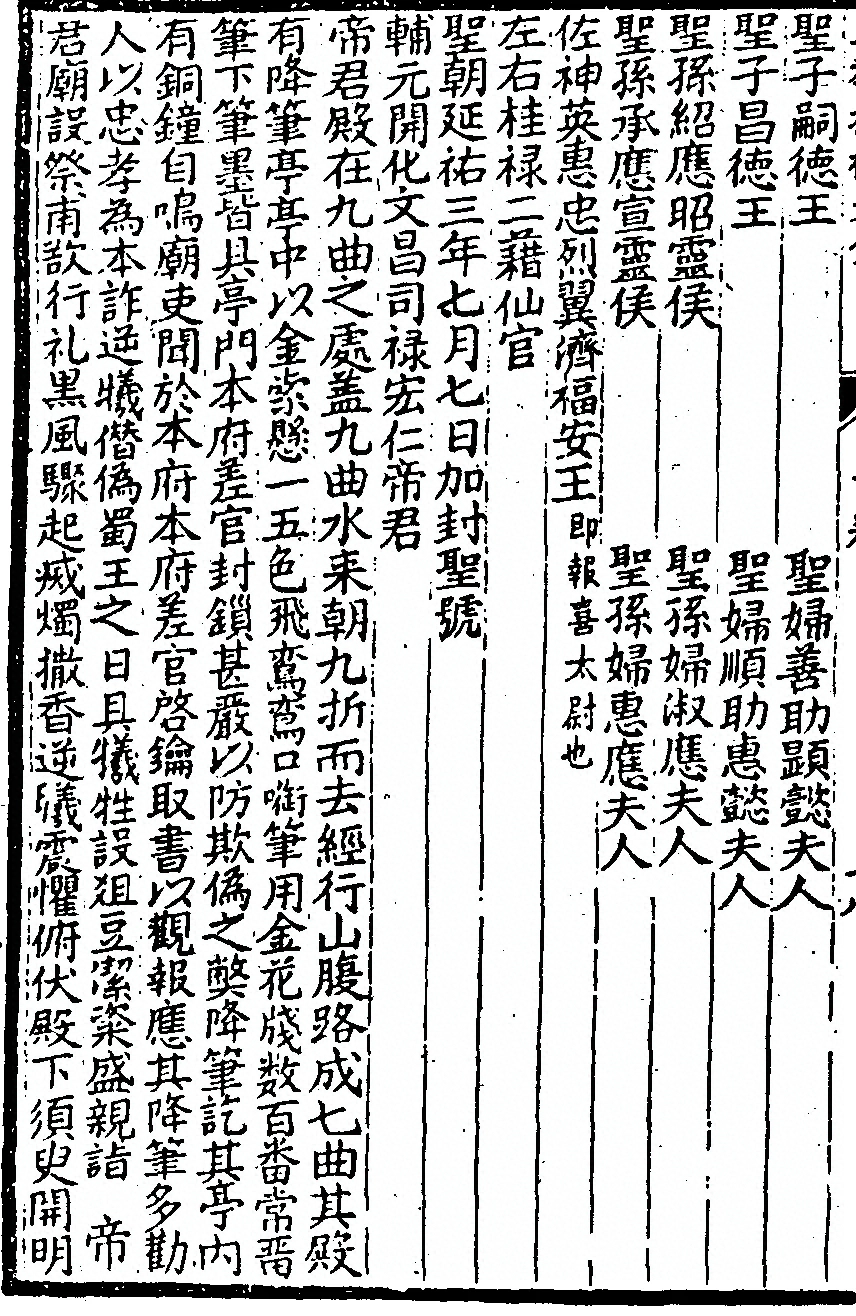 聖子嗣德王　聖婦善助顕懿夫人
聖子昌德王　聖婦順助惠懿夫人
聖孫紹應昭靈侯　聖孫婦淑應夫人
聖孫承應宣靈侯　聖孫婦惠應夫人
佐神英惠忠烈翼濟福安王即報喜太尉也
左右桂禄二藉仙官
聖朝延祐三年七月七日加封聖號
輔元開化文昌司禄宏仁帝君
帝君殿在九曲之處盖九曲水来朝九折而去經行山腹路成七曲其殿
有降筆亭亭中以金索懸一五色飛鸞鸞口啣筆用金花牋数百番常畱
筆下筆墨皆具亭門本府差官封鎖甚嚴以防欺偽之弊降筆訖其亭内
有銅鐘自鳴廟吏聞於本府本府差官啓鑰取書以觀報應其降筆多勸
人以忠孝為本詐逆㬢僭偽蜀王之日具犧牲設俎豆潔粢盛親詣　帝
君廟設祭甫歆行礼黒風驟起㓕燭撒香逆㬢震懼俯伏殿下須臾開明